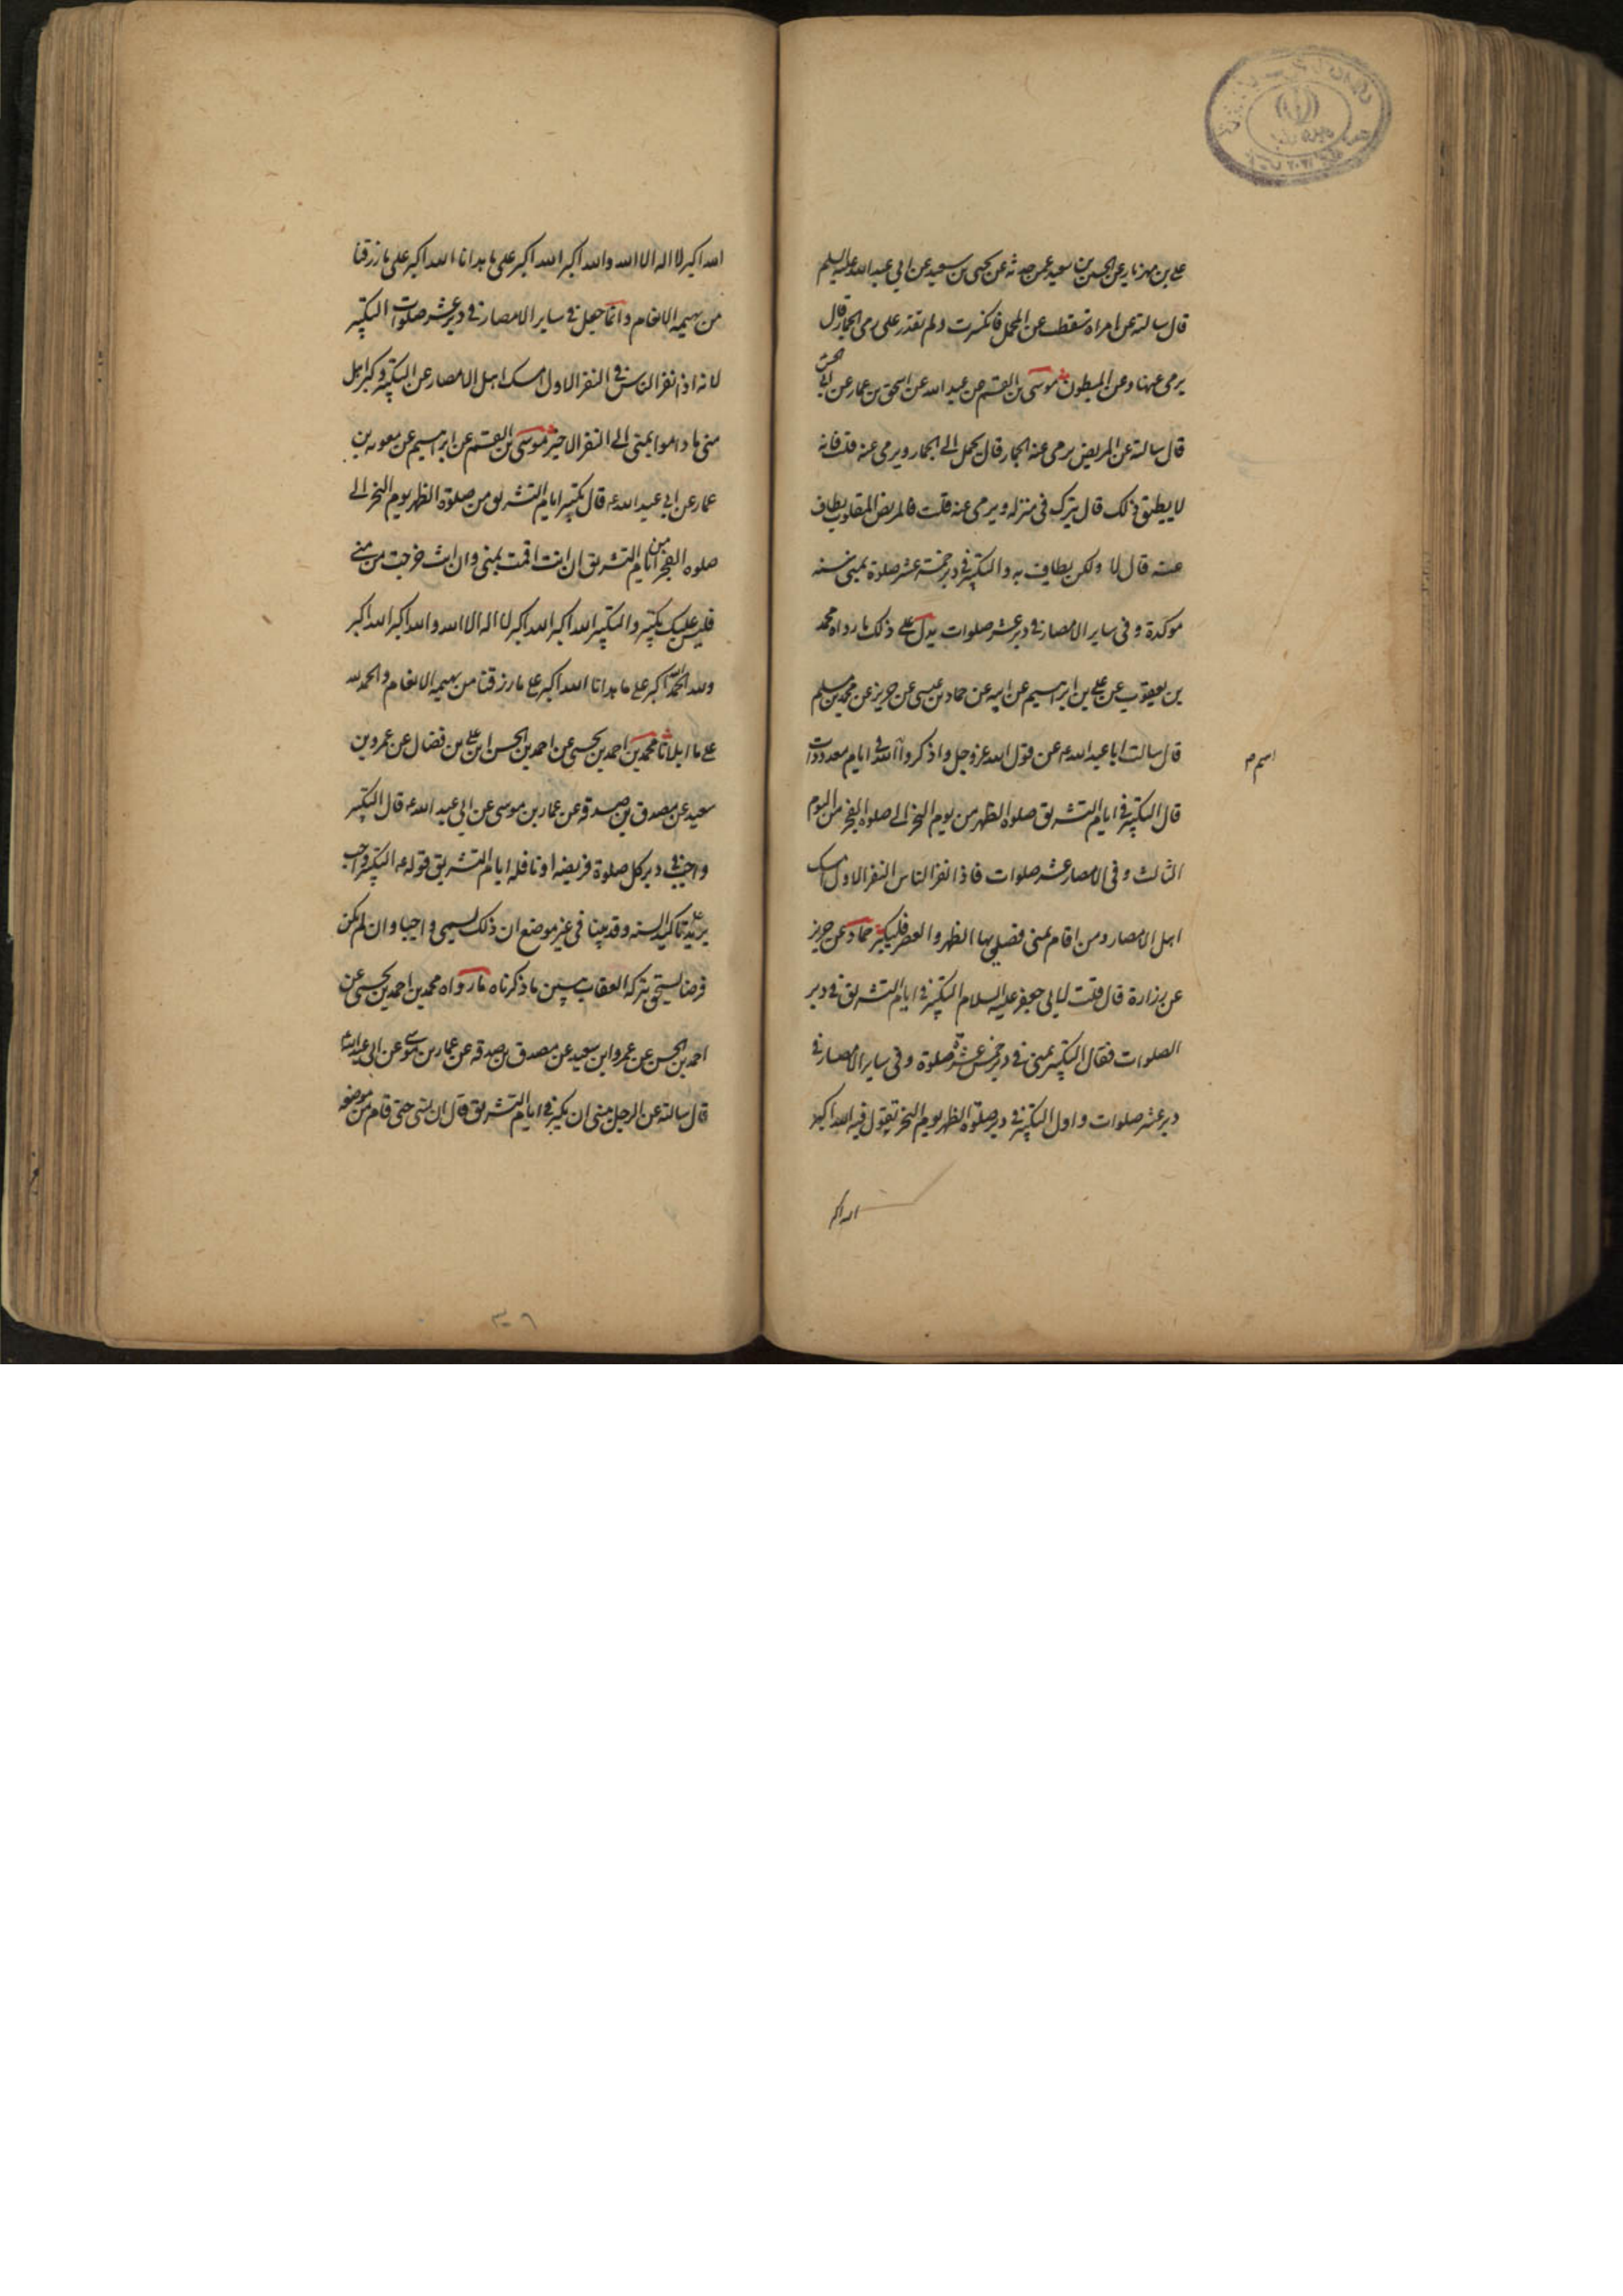 علي بن مهزيار عن الحسين بن سعيد عمن حدثه عن يحيى بن سعيد عن ابي عبد الله عليه السلم
قال سالته عن امراة سقطت عن المحمل فانكسرت ولم تقدر على رمى الجمار قال
يرمى عنها وعن المبطون موسى بن القسم عن عبد الله عن اسحق بن عمار عن ابي الحسن
قال سالته عن المريض يرمى عنه الجمار قال يحمل الى الجمار ويرمى عنه قلت فانه
لا يطيق ذلك قال يترك فى منزله ويرمى عنه قلت فالمريض المغلوب يطاف
عنه قال لا ولكن يطاف به والتكبير فى دبر خمسة عشر صلوة بمنى سنه
موكدة وفى ساير الامصار فى دبر عشر صلوات يدل على ذلك ما رواه محمد
بن يعقوب عن على بن ابراهيم عن ابيه عن حماد بن عيسى عن حريز عن محمد بن مسلم
قال سالت ابا عبد الله ع عن قول الله عز وجل واذكروا الله فى ايام معدودات
قال التكبير فى ايام التشريق صلوة الظهر من يوم النحر الى صلوة الفجر من اليوم
الثالث وفى الامصار عشر صلوات فاذا نفر الناس النفر الاول امسك
اهل الامصار ومن اقام بمنى فصلى بها الظهر والعصر فليكبر حماد عن حريز
عن زرارة قال قلت لابى جعفر عليه السلام التكبير فى ايام التشريق فى دبر
الصلوات فقال التكبير بمنى فى دبر خمس عشرة صلوة وفى ساير الامصار فى
دبر عشر صلوات واول التكبير فى دبر صلوة الظهر يوم النحر تقول فيه الله اكبر
الله اكبر
الله اكبر لا اله الا الله والله اكبر الله اكبر على ما هدانا الله اكبر على ما رزقنا
من بهيمة الانعام وانما جعل فى ساير الامصار فى دبر عشر صلوات التكبير
لانه اذا نفر الناس فى النفر الاول امسك اهل الامصار عن التكبير وكبر اهل
منى ما داموا بمنى الى النفر الاخير موسى بن القسم عن ابراهيم عن معويه بن
عمار عن ابي عبد الله ع قال تكبير ايام التشريق من صلوة الظهر يوم النحر الى
صلوه الفجر من ايام التشريق ان انت اقمت بمنى وان انت خرجت من منى
فليس عليك تكبير والتكبير الله اكبر الله اكبر لا اله الا الله والله اكبر الله اكبر
ولله الحمد الله اكبر على ما هدانا الله اكبر على ما رزقنا من بهيمة الانعام والحمد لله
على ما ابلانا محمد بن احمد بن يحيى عن احمد بن الحسن ابن على بن فضال عن عمرو بن
سعيد عن مصدق بن صدقة عن عمار بن موسى عن ابى عبد الله ع قال التكبير
واجب فى دبر كل صلوة فريضه او نافله ايام التشريق قوله ع التكبير واجب
يريد تاكيد السنه وقد بينا فى غير موضع ان ذلك يسمى واجبا وان لم يكن
فرضا يستحق بتركه العقاب يبين ما ذكرناه ما رواه محمد بن احمد بن يحيى عن
احمد بن الحسن عن عمرو ابن سعيد عن مصدق بن صدقه عن عمار بن موسى عن ابى عبد الله
قال سالته عن الرجل ينسى ان يكبر فى ايام التشريق قال ان نسى حتى قام من موضعه